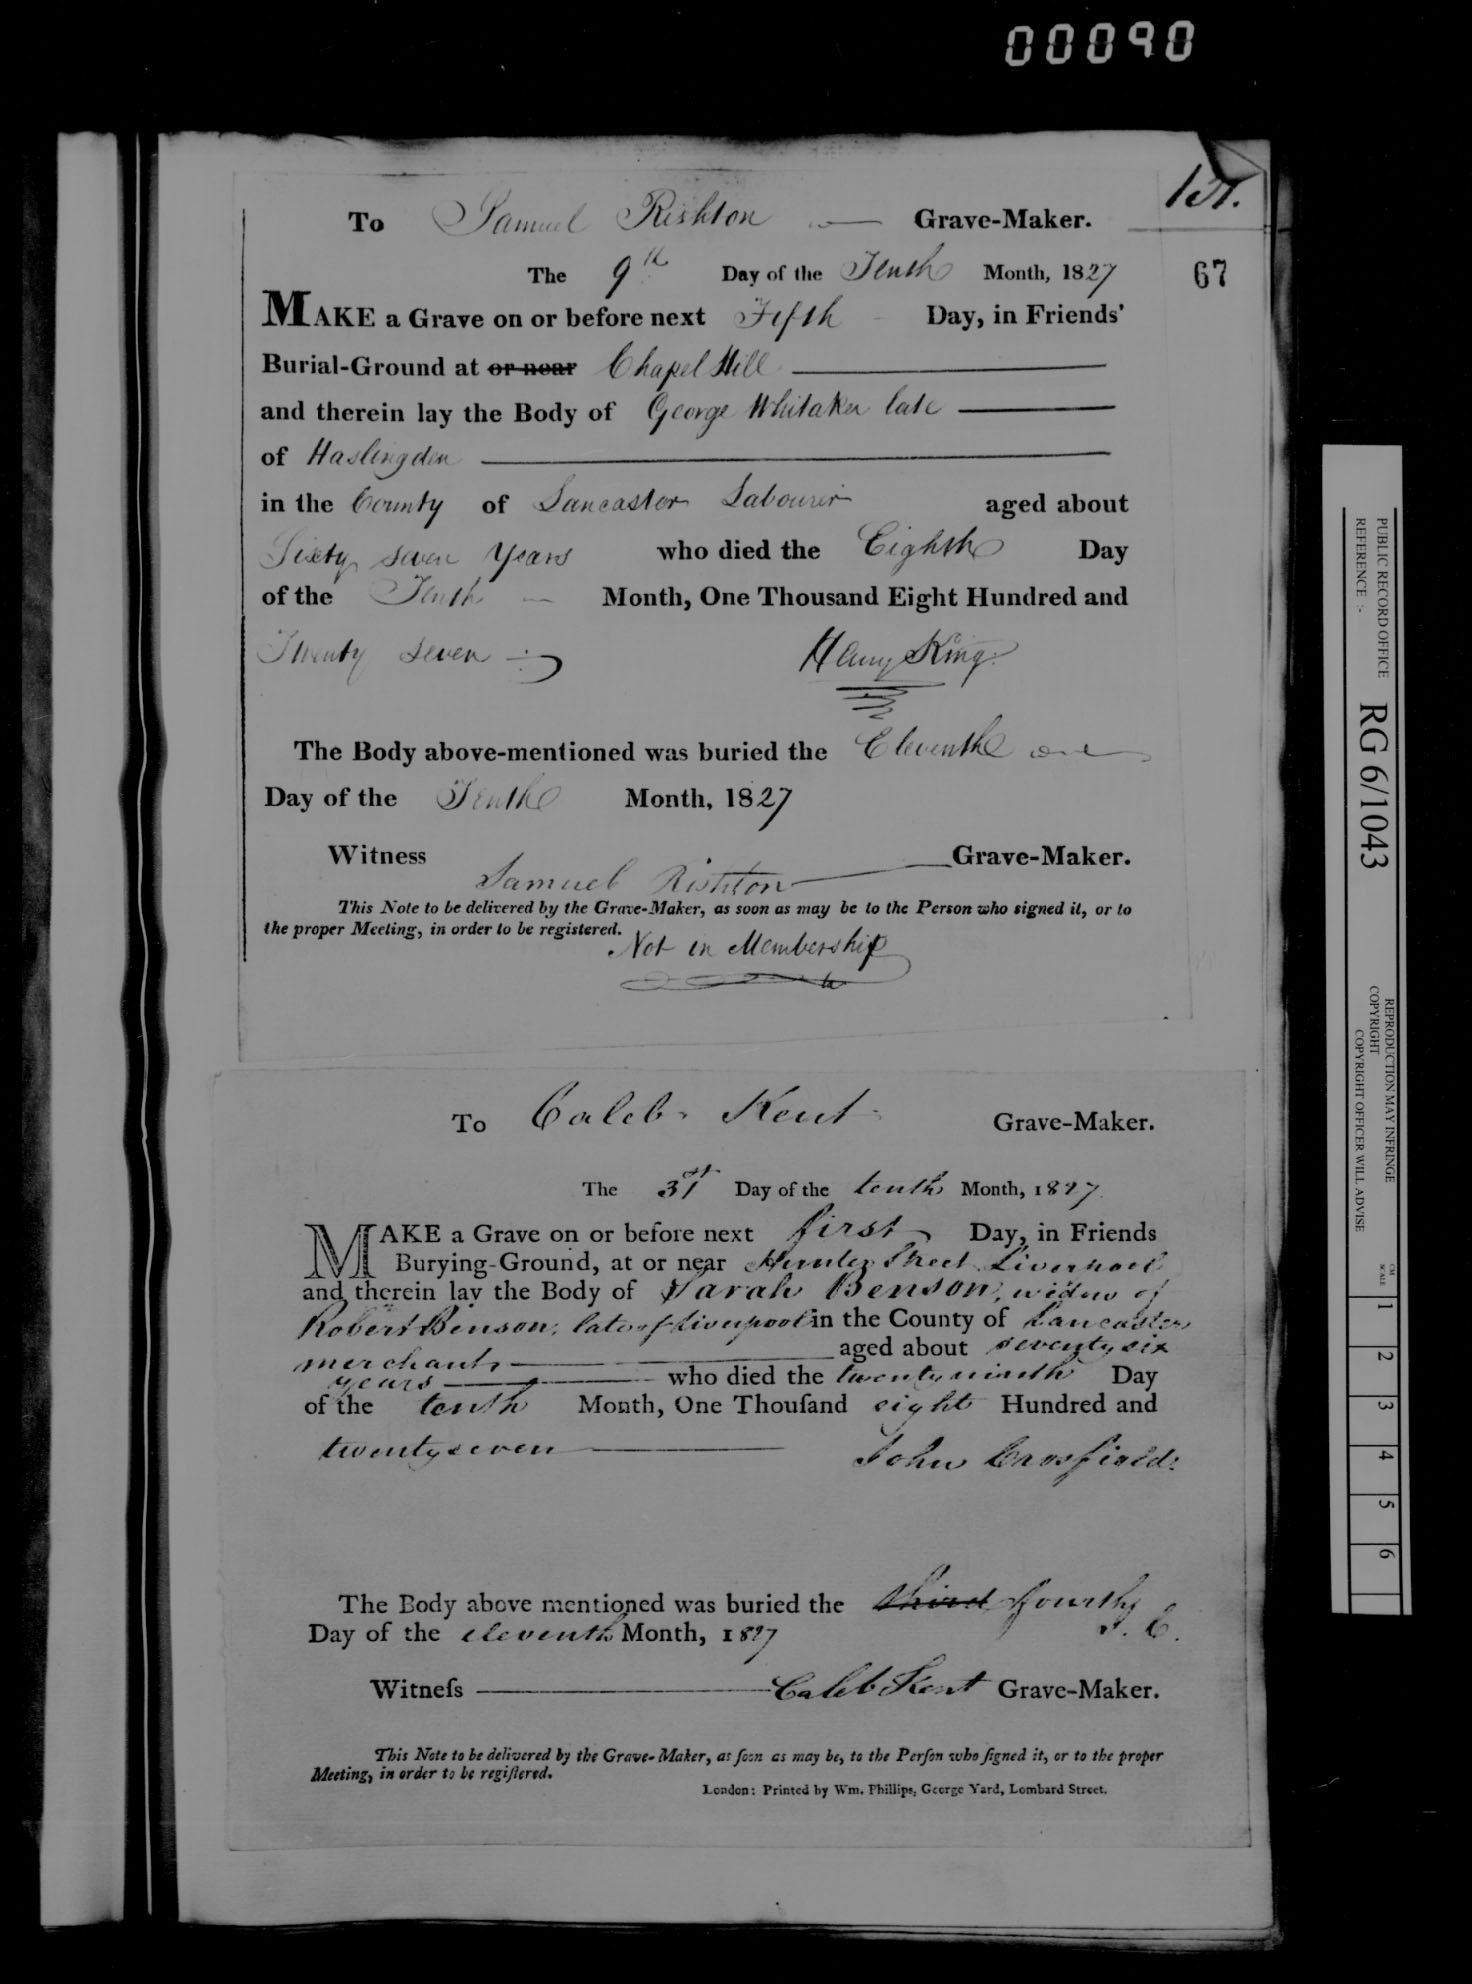 00090
131.
67
To Samuel Rishton Grave-Maker.
The 9th Day of the Tenth Month, 1827
MAKE a Grave on or before next Fifth Day, in Friends'
Burial-Ground at or near Chapel Hill
and therein lay the Body of George Whitaker late
of Haslingden
in the County of Lancaster Labourer aged about
Sixty seven Years who died the Eighth Day
of the Tenth Month, One Thousand Eight Hundred and
Twenty Seven
Henry King
The Body above-mentioned was buried the Eleventh
Day of the Tenth Month, 1827
Witness Samuel Rishton Grave-Maker.
This Note to be delivered by the Grave-Maker, as soon as may be to the Person who signed it, or to
the proper Meeting, in order to be registered.
Not in Membership
To Caleb Kent Grave-Maker.
The 31st Day of the tenth Month, 1827
MAKE a Grave on or before next first Day, in Friends
Burying-Ground, at or near Hunter Street Liverpool
and therein lay the Body of Sarah Benson, widow of
Robert Benson, late of Liverpool in the County of Lancaster
merchant aged about seventy six
years who died the twenty ninth Day
of the tenth Month, One Thouſand eight Hundred and
twenty seven John Crosfield.
The Body above mentioned was buried the third fourth
J. C.
Day of the eleventh Month, 1827
Witneſs Caleb Kent Grave-Maker.
This Note to be delivered by the Grave-Maker, as ſoon as may be, to the Perſon who ſigned it, or to the proper
Meeting, in order to be regiſtered.
London: Printed by Wm. Phillips, George Yard, Lombard Street.
PUBLIC RECORD OFFICE
REFERENCE :-
RG 6/1043
REPRODUCTION MAY INFRINGE
COPYRIGHT
COPYRIGHT OFFICER WILL ADVISE
CM
SCALE
1 2 3 4 5 6